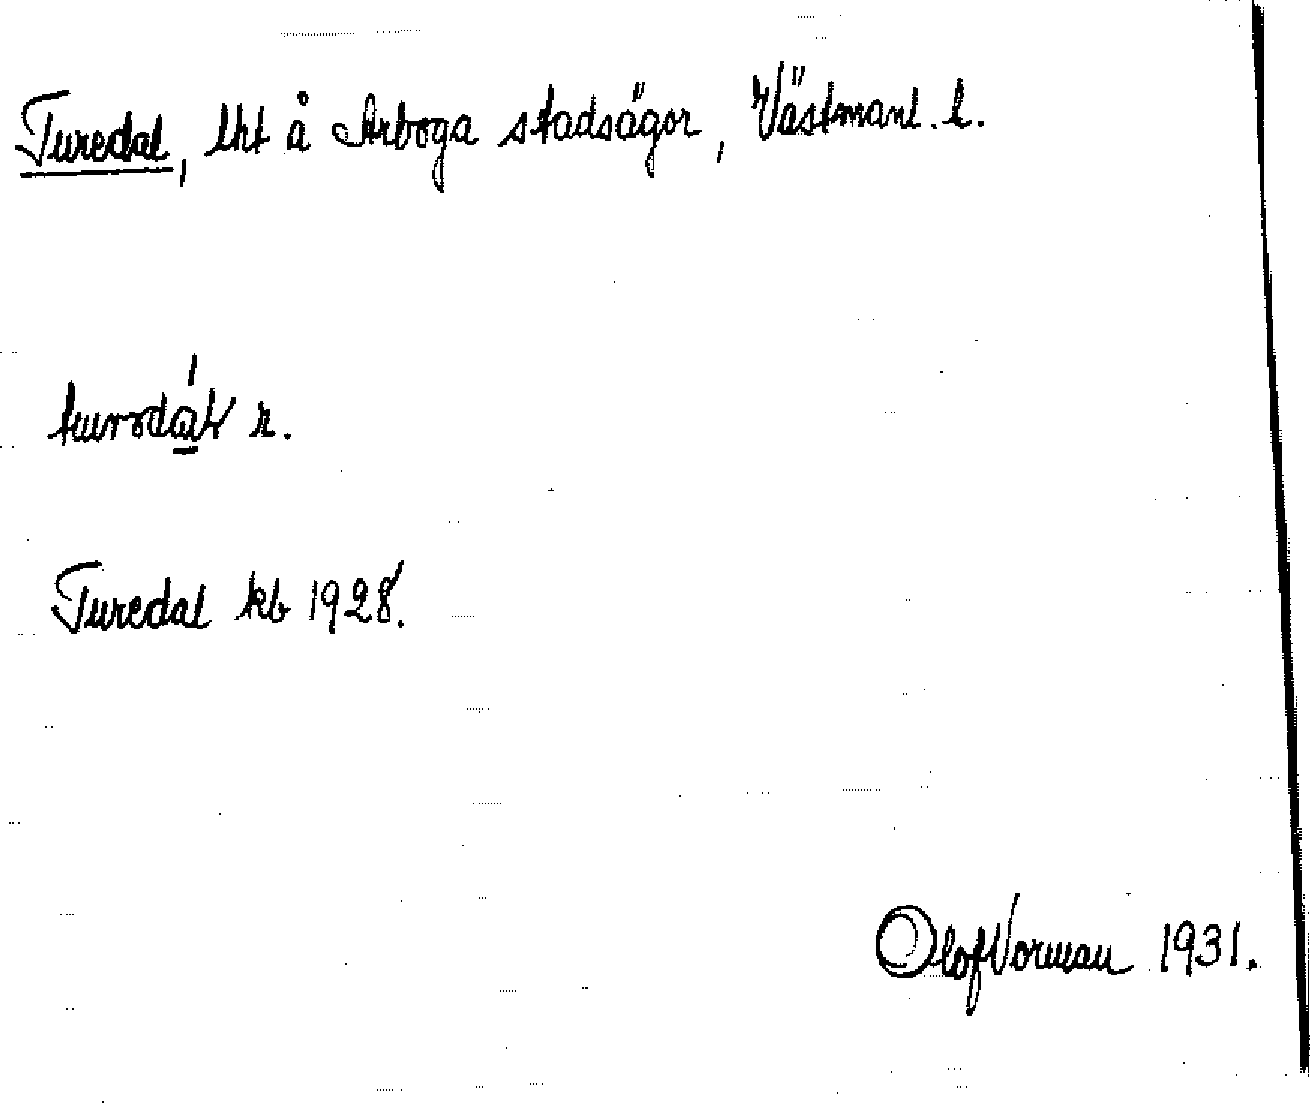 Turedal, lht å Arboga stadsägor, Västmanl. l.
r.
Turedal kb 1928.
Olof Vorman 1931.